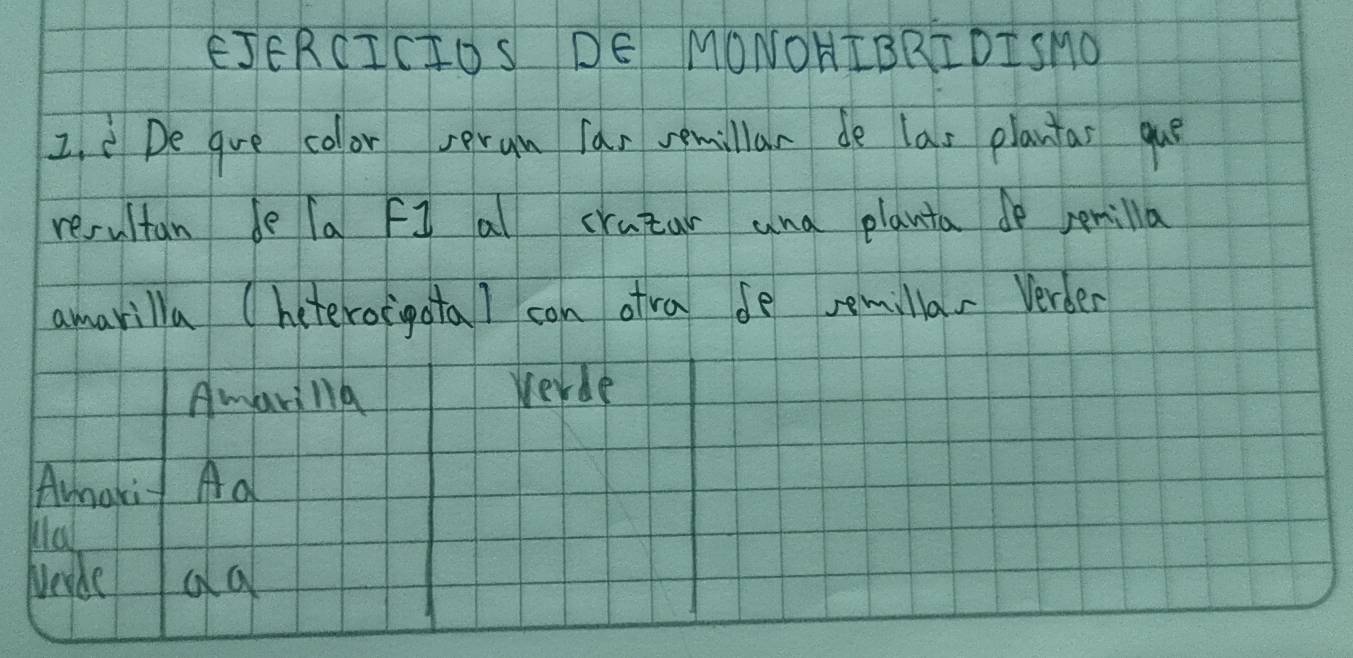 EJERCICIOS DE MONOHIBRIDISMO
1. ¿ De que color serun las semillas de las plantas que
resultan de la F1 al cruzar una planta de semilla
amarilla (heterocigota) con otra de semillas Verdes
Amarilla Verde
Amari- Aa
lla
Verde aa